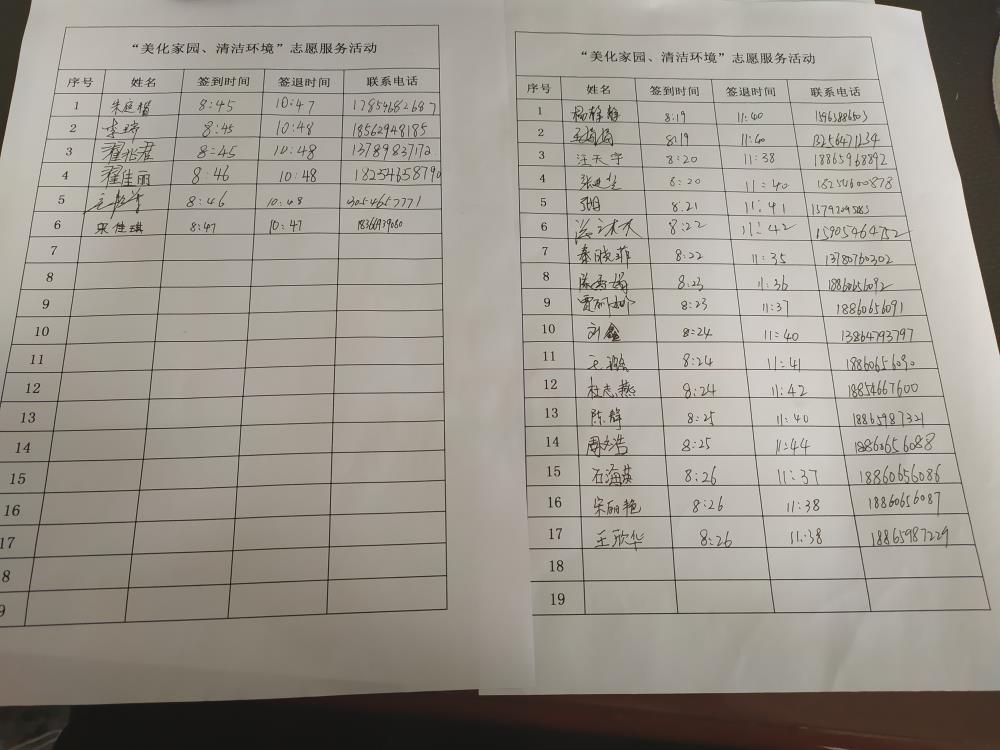 “美化家园、清洁环境”志愿服务活动
序号 姓名 签到时间 签退时间 联系电话
1 8:45 10:47
2 8:45 10:48 18562948185
3 翟兆君 8:45 10:48 13789837172
4 翟佳丽 8:46 10:48 18254658790
5 8:46 10:48
6 宋佳琪 8:47 10:47
7
8
9
10
11
12
13
14
15
16
17
8
9
“美化家园、清洁环境”志愿服务活动
序号 姓名 签到时间 签退时间 联系电话
1 杨静静 8:19 11:40
2 8:19 11:40 13256471234
3 汪天宇 8:20 11:38 18865968892
4 8:20 11:40 18254600878
5 8:21 11:41
6 8:22 11:42 15905464752
7 秦晓菲 8:22 11:35 13780760302
8 8:23 11:36 18860656092
9 8:23 11:37 18860656091
10 刘鑫 8:24 11:40 13864793797
11 8:24 11:41 18860656090
12 杜志燕 8:24 11:42 18854667600
13 陈峰 8:25 11:40 18865987321
14 8:25 11:44 18860656088
15 石海英 8:26 11:37 18860656086
16 宋丽艳 8:26 11:38 18860656087
17 王欣华 8:26 11:38 18865987229
18
19